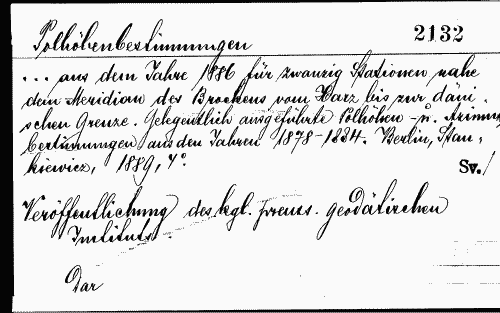 Polhöhenbestimmungen
2132
... aus dem Jahre 1886 für zwanzig Stationen nahe
dem Meridian des Brockens vom Harz bis zur däni-
schen Grenze. Gelegentlich ausgeführte Polhöhen- u. Azimut-
bestimmungen aus den Jahren 1878-1884. Berlin, Stan-
kiewicz, 1889, 4°.
Sv. /
Veröffentlichung des kgl. preuss. geodätischen
Instituts.
Dar